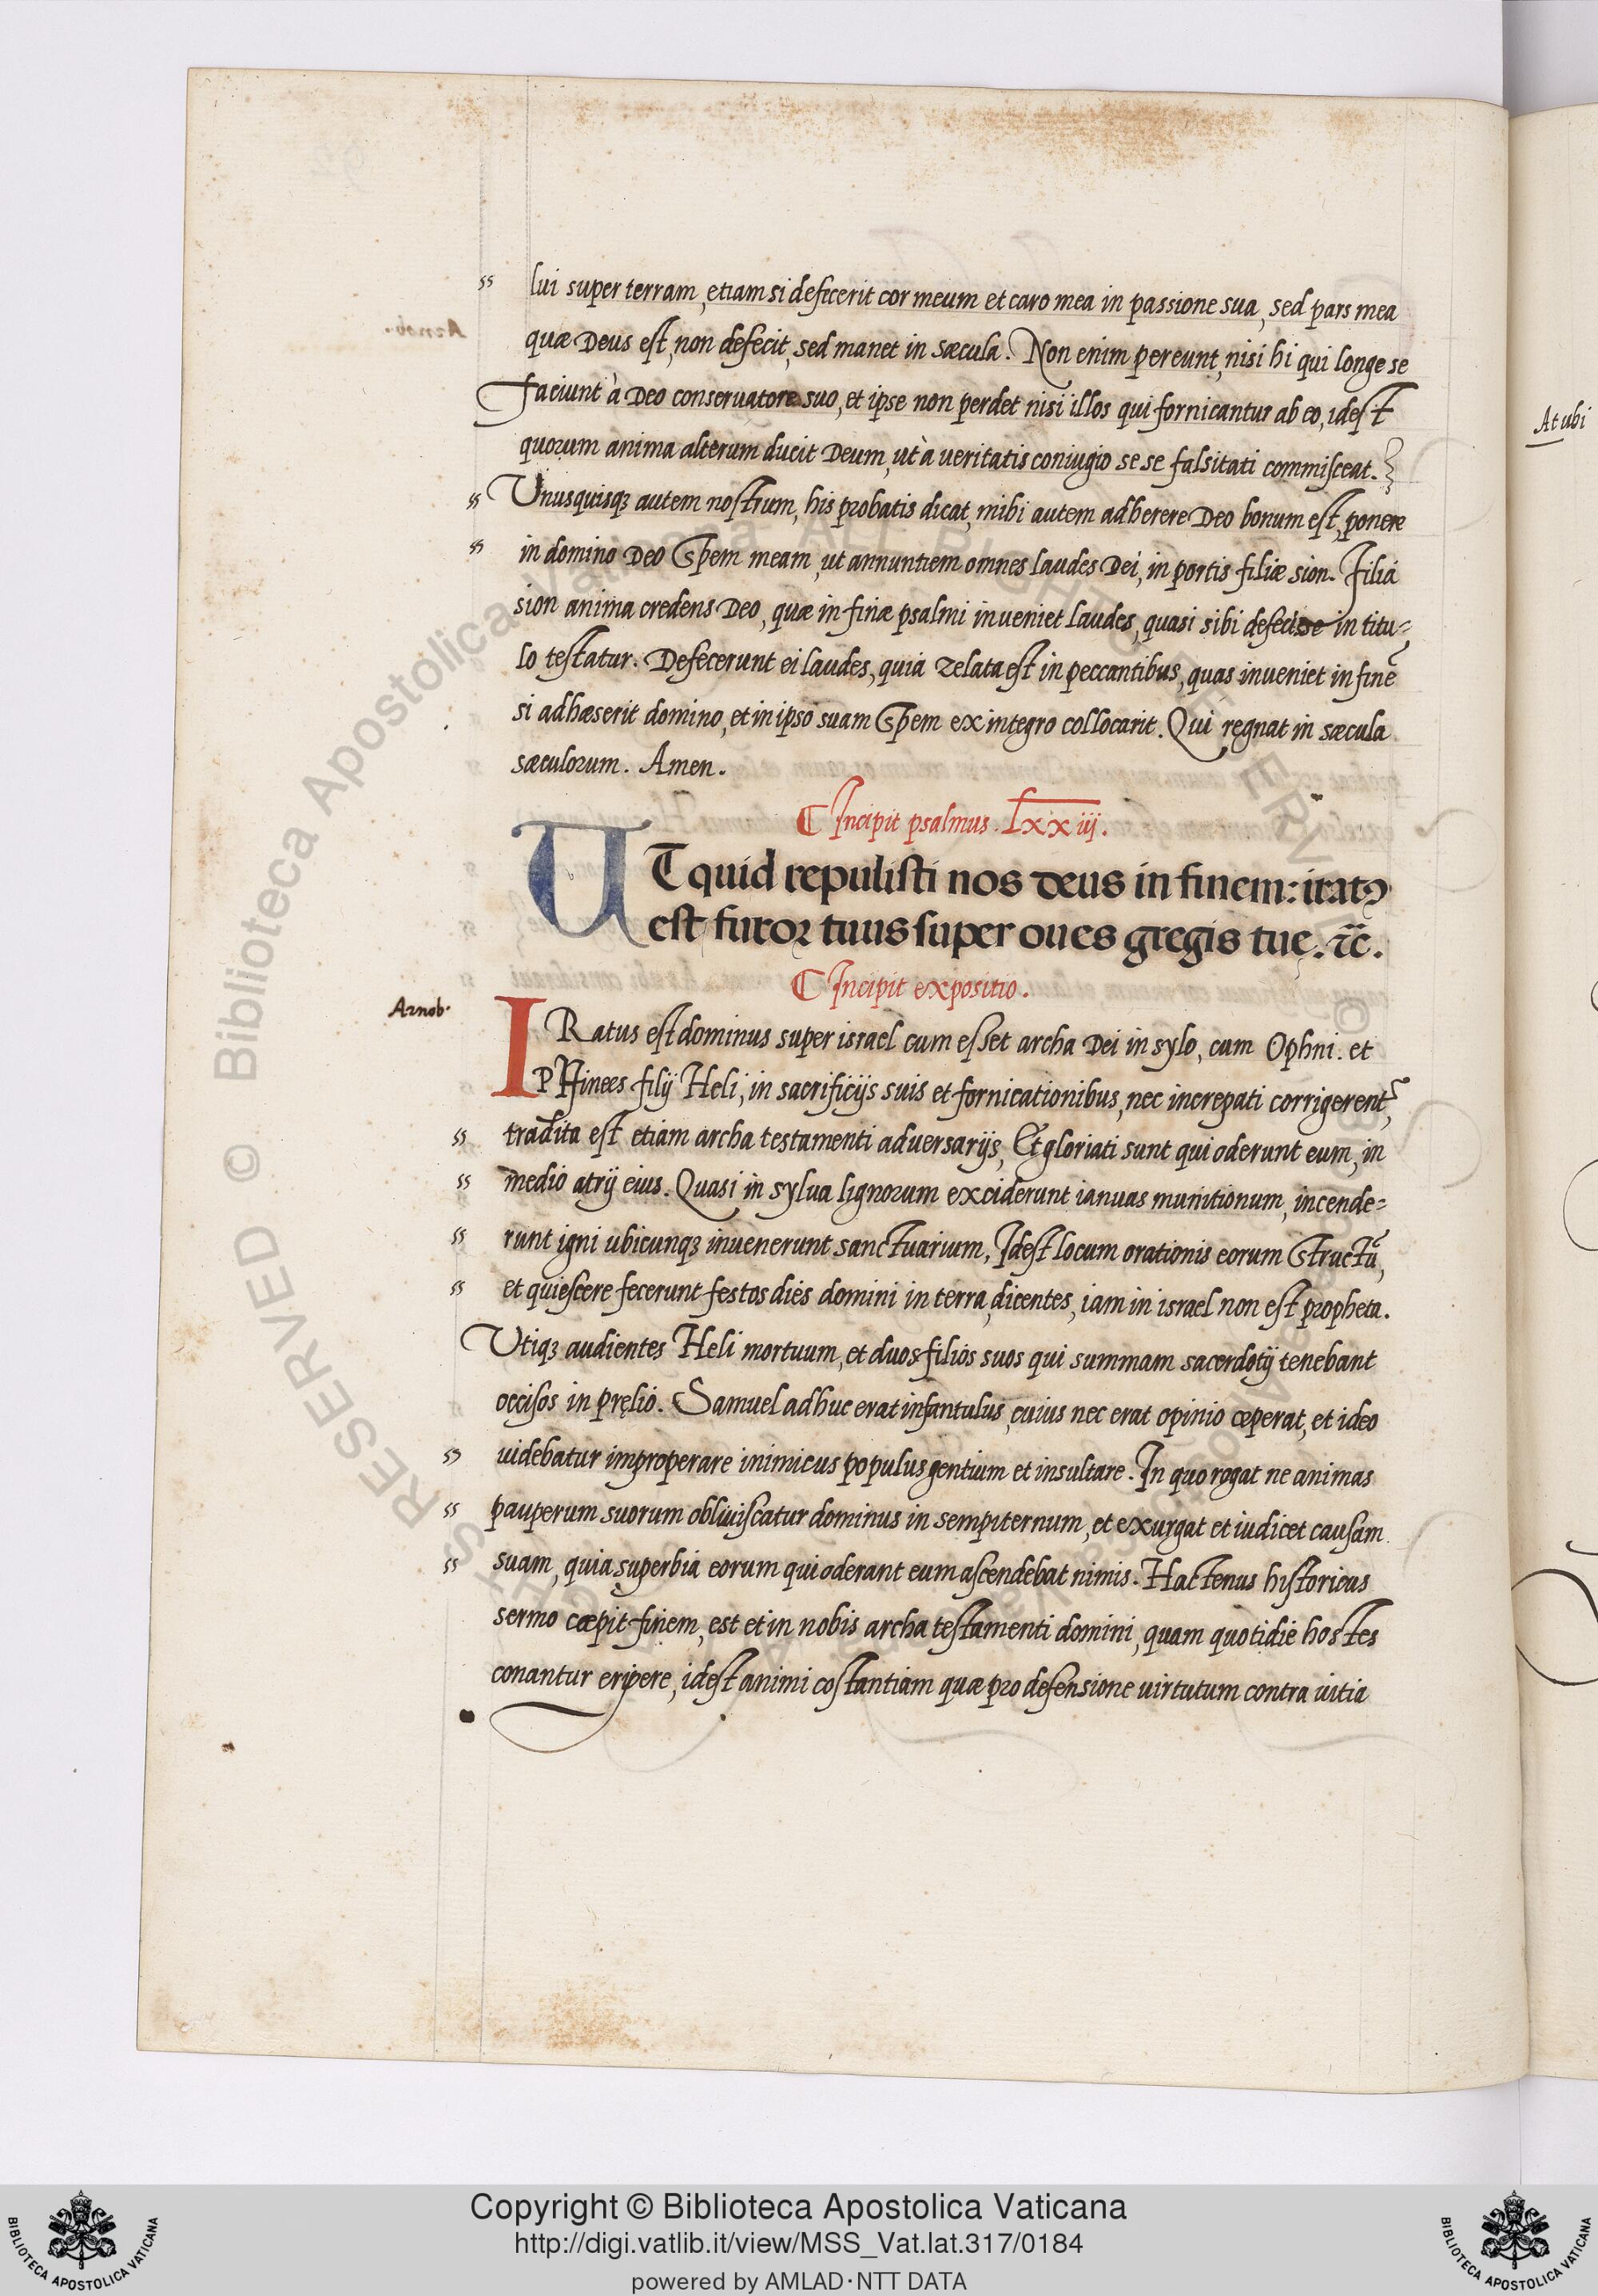 lui super terram, etiam si defecerit cor meum et caro mea in passione sua, sed pars mea
quæ Deus est, non defecit, sed manet in sæcula. Non enim pereunt, nisi hi qui longe se
faciunt à Deo conseruatore suo, et ipse non perdet nisi illos qui fornicantur ab eo, idest
quorum anima alterum ducit Deum, ut à ueritatis coniugio sese falsitati commisceat.
Unusquisqꝫ autem nostrum, his probatis dicat, mihi autem adherere Deo bonum est, ponere
in domino Deo Spem meam, ut annuntiem omnes laudes Dei, in portis filiæ sion. Filia
sion anima credens Deo, quæ in finæ psalmi inueniet laudes, quasi sibi defecisse in titu=
lo testatur. Defecerunt ei laudes, quia zelata est in peccantibus, quas inueniet in fine
si adhæserit domino, et in ipso suam Spem ex integro collocarit. Qui regnat in sæcula
sæculorum. Amen.
Incipit psalmus. Lxxiij.
UT quid repulisti nos deus in finem: iratꝰ
est furor tuus super oues gregis tuę. ⁊c̃.
Incipit expositio.
Arnob.
IRatus est dominus super israel cum esset archa Dei in sylo, cum Ophni. et
PHinees filij Heli, in sacrificijs suis et fornicationibus, nec increpati corrigerent᷑,
tradita est etiam archa testamenti aduersarijs, Et gloriati sunt qui oderunt eum, in
medio atrij eius. Quasi in sylua lignorum exciderunt ianuas munitionum, incende=
runt igni ubicunqꝫ inuenerunt sanctuarium, Idest locum orationis eorum Structũ,
et quiescere fecerunt festos dies domini in terra, dicentes, iam in israel non est propheta.
Utiqꝫ audientes Heli mortuum, et duos filios suos qui summam sacerdotij tenebant
occisos in pręlio. Samuel adhuc erat infantulus, cuius nec erat opinio cæperat, et ideo
uidebatur improperare inimicus populus gentium et insultare. In quo rogat ne animas
pauperum suorum obliuiscatur dominus in sempiternum, et exurgat et iudicet causam
suam, quia superbia eorum qui oderant eum ascendebat nimis. Hactenus historicus
sermo cæpit finem, est et in nobis archa testamenti domini, quam quotidie hostes
conantur eripere, idest animi costantiam quæ pro defensione uirtutum contra uitia
At ubi
Copyright © Biblioteca Apostolica Vaticana
http://digi.vatlib.it/view/MSS_Vat.lat.317/0184
powered by AMLAD·NTT DATA
BIBLIOTECA APOSTOLICA VATICANA
BIBLIOTECA APOSTOLICA VATICANA